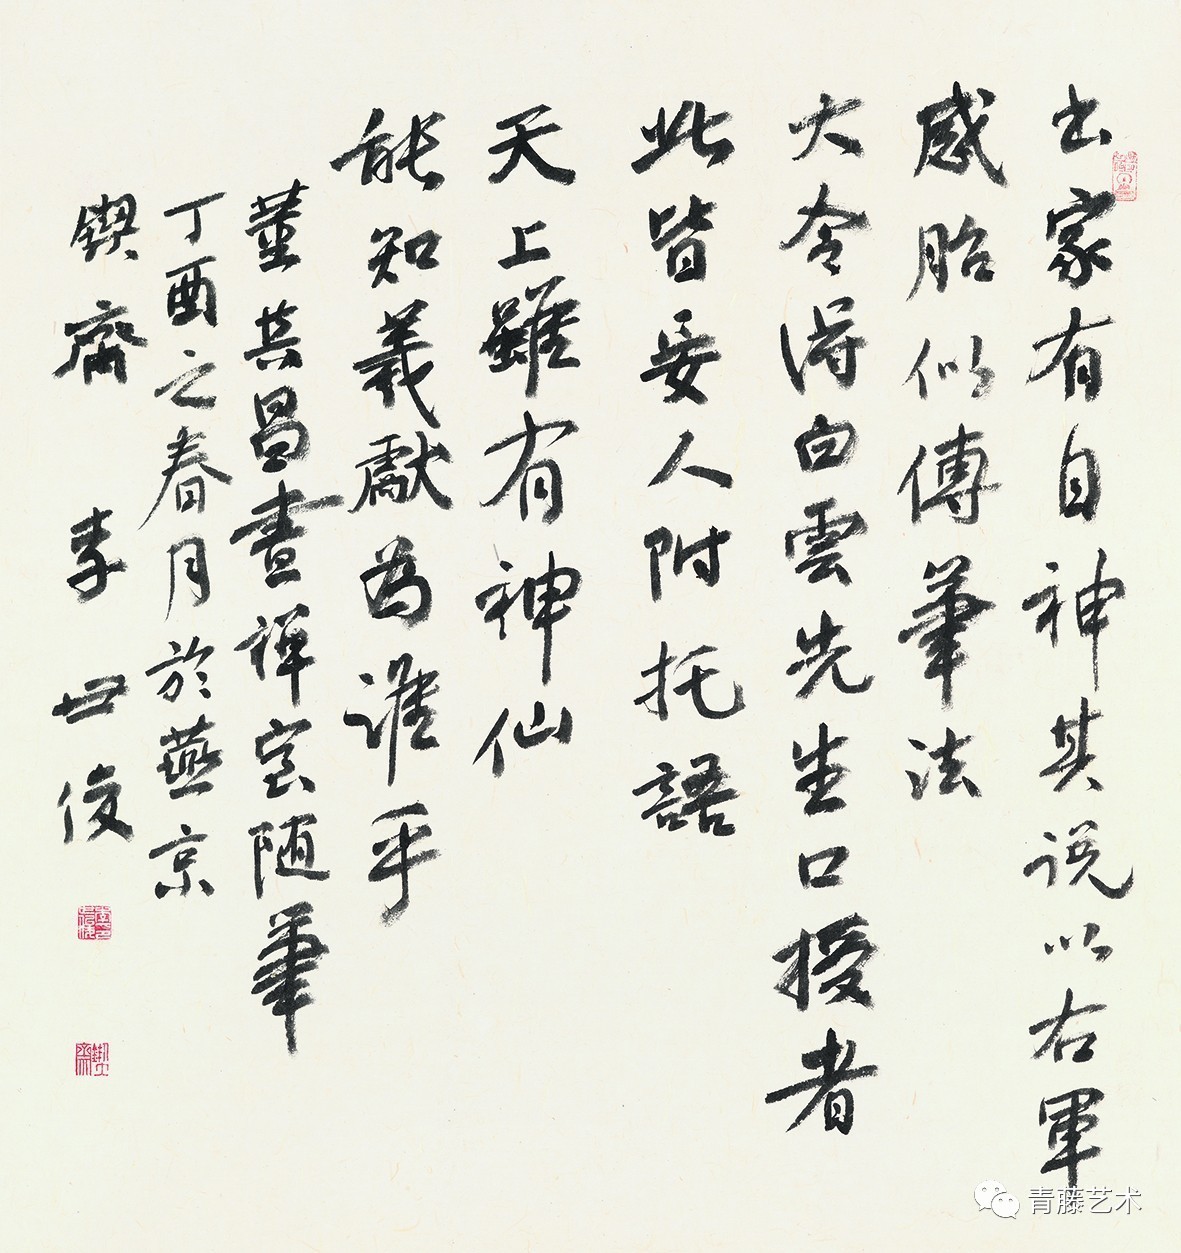 书家有自神其说以右軍
感胎似傳筆法
大令得白雲先生口授者
此皆妄人附托語
天上雖有神仙
能知羲獻為誰乎
董其昌畫禪室随筆
丁酉之春月於燕京
鍥齋 李世俊
青藤艺术